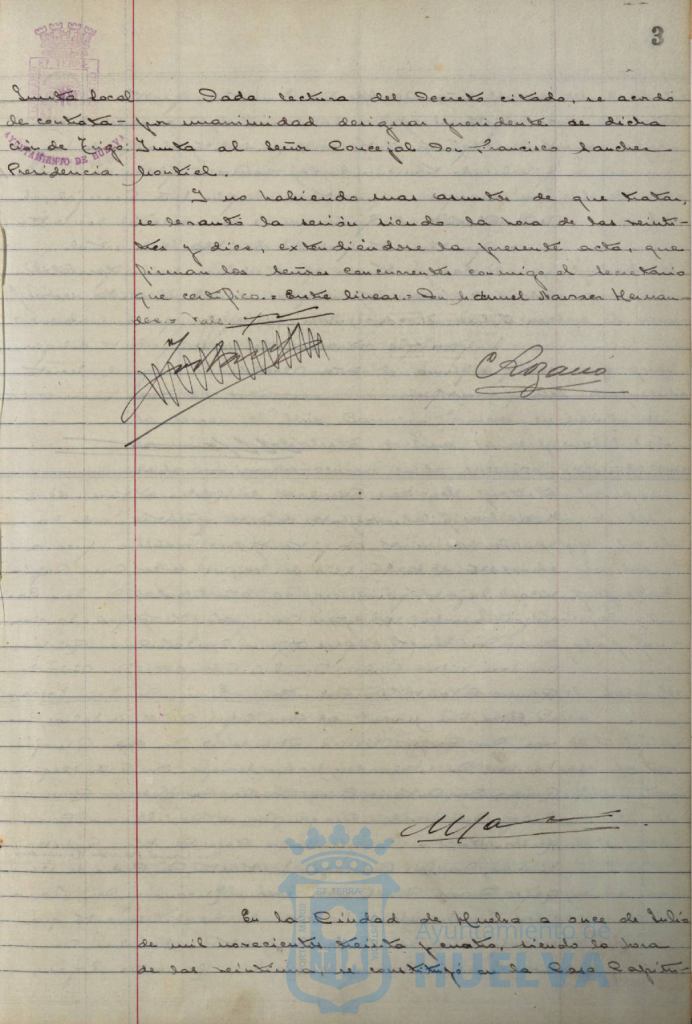 3
Junta local
de contrata-
ción de Trigo.
Presidencia
AYUNTAMIENTO DE HUELVA
Dada lectura del Decreto citado, se acordó
por unanimidad designar presidente de dicha
Junta al Señor Concejal Don Francisco Sanchez
Montiel.
Y no habiendo mas asuntos de que tratar,
se levantó la sesión siendo la hora de las veinti-
tres y diez, extendiéndose la presente acta, que
firman los Señores concurrentes conmigo el Secretario
que certifico.= Entre lineas.= Don Manuel Navarr Hernan-
dez.= Vale
C Lozano
En la Ciudad de Huelva a once de Julio
de mil novecientos treinta y cuatro, siendo la hora
de las veintiuna, se constituyó en la Casa Capitu-
Ayuntamiento de
HUELVA